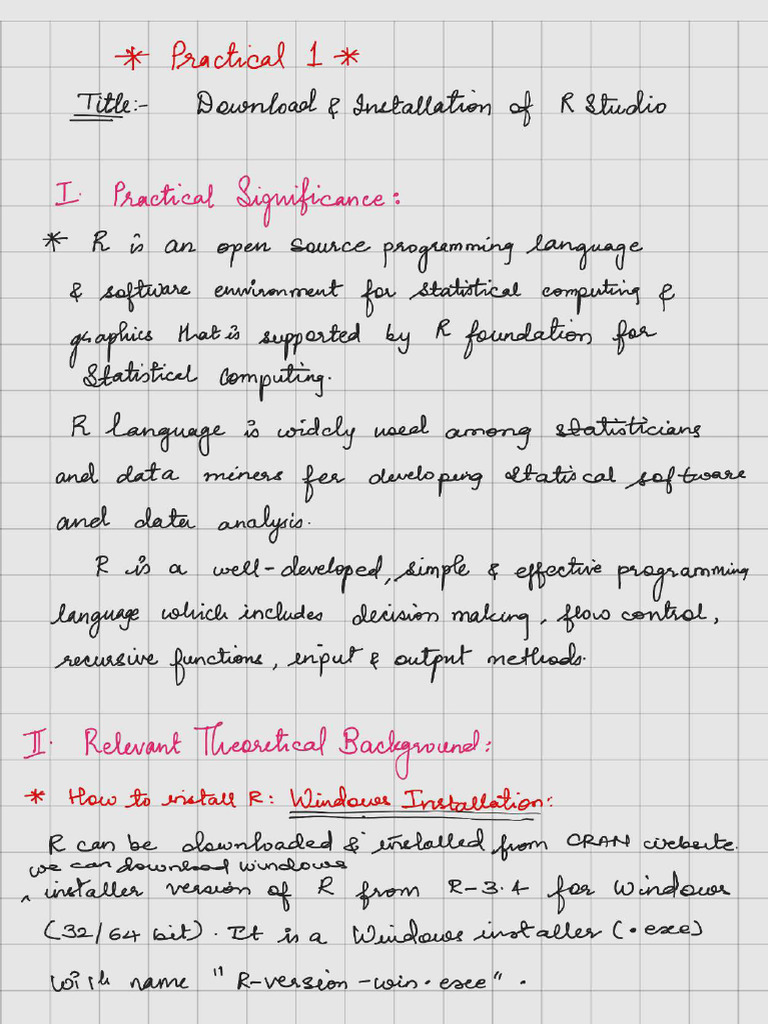 * Practical 1 *
Title:- Download & Installation of R Studio
I. Practical Significance:
* R is an open source programming language
& software environment for statistical computing &
graphics that is supported by R foundation for
Statistical Computing.
R language is widely used among statisticians
and data miners for developing statiscal software
and data analysis.
R is a well-developed, simple & effective programming
language which includes decision making, flow control,
recursive functions, input & output methods.
II. Relevant Theoretical Background:
* How to install R: Windows Installation:
R can be downloaded & installed from CRAN website.
we can download windows
^ installer version of R from R-3.4 for windows
(32/64 bit). It is a Windows installer (.exe)
with name "R-version-win.exe".